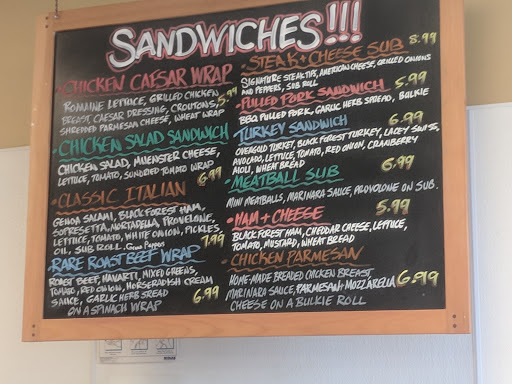 SANDWICHES!!!
• CHICKEN CAESAR WRAP
ROMAINE LETTUCE, GRILLED CHICKEN
BREAST, CAESAR DRESSING, CROUTONS, 5.99
SHREDDED PARMESAN CHEESE, WHEAT WRAP
• CHICKEN SALAD SANDWICH
CHICKEN SALAD, MUENSTER CHEESE,
LETTUCE, TOMATO, SUNDRIED TOMATO WRAP
6.99
• CLASSIC ITALIAN
GENOA SALAMI, BLACK FOREST HAM,
SOPRESETTA, MORTADELLA, PROVELONE,
LETTUCE, TOMATO, WHITE ONION, PICKLES,
OIL, SUB ROLL. Green Peppers 7.99
• RARE ROAST BEEF WRAP
ROAST BEEF, HAVARTI, MIXED GREENS,
TOMATO, RED ONION, HORSERADISH CREAM
SAUCE, GARLIC HERB SREAD 6.99
ON A SPINACH WRAP
• STEAK + CHEESE SUB 8.99
SIGNATURE STEAK TIPS, AMERICAN CHEESE, GRILLED ONIONS
AND PEPPERS, SUB ROLL
• PULLED PORK SANDWICH 5.99
BBQ PULLED PORK, GARLIC HERB SPREAD, BULKIE
TURKEY SANDWICH 6.99
OVENGOLD TURKEY, BLACK FOREST TURKEY, LACEY SWISS,
AVOCADO, LETTUCE, TOMATO, RED ONION, CRANBERRY
MOLI, WHEAT BREAD
• MEATBALL SUB 6.99
MINI MEATBALLS, MARINARA SAUCE, PROVOLONE ON SUB.
• HAM + CHEESE 5.99
BLACK FOREST HAM, CHEDDAR CHEESE, LETTUCE,
TOMATO, MUSTARD, WHEAT BREAD
• CHICKEN PARMESAN
HOME-MADE BREADED CHICKEN BREAST
MARINARA SAUCE, PARMESAN + MOZZARELLA 6.99
CHEESE ON A BULKIE ROLL